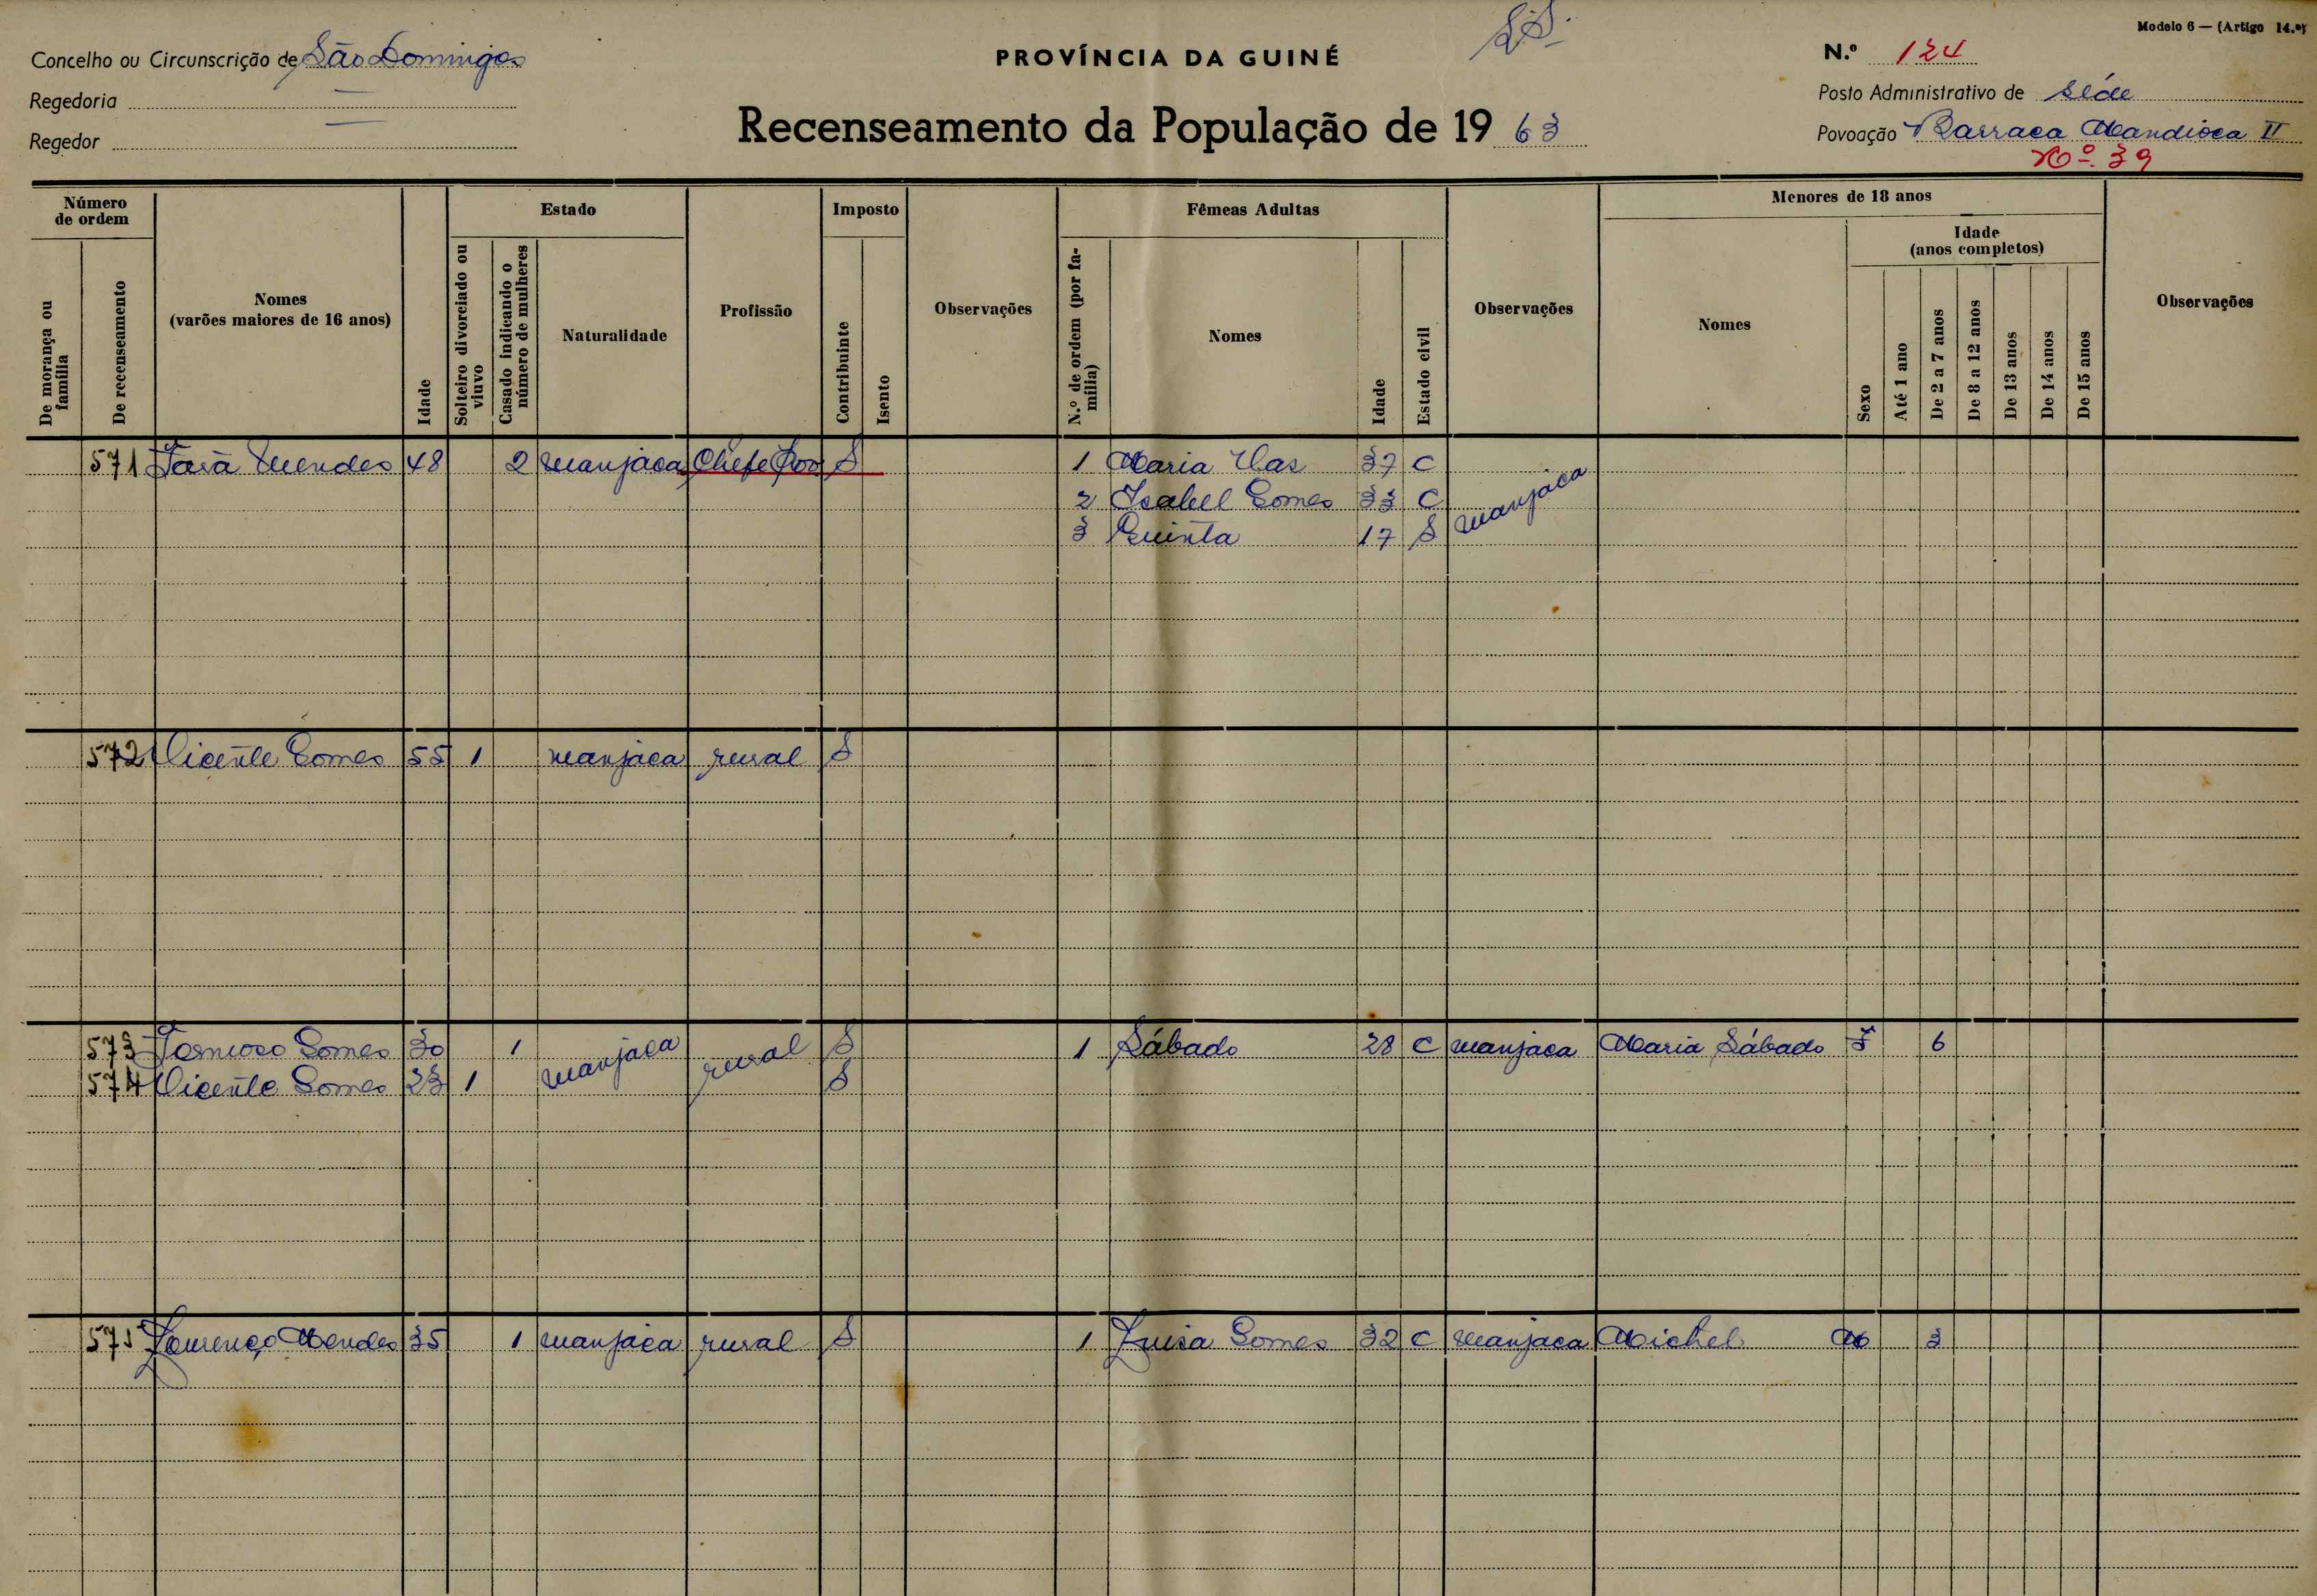 Modelo 6 — (Artigo 14.º)
Concelho ou Circunscrição de São Domingos
PROVÍNCIA DA GUINÉ
N.º 124
Regedoria —
Posto Administrativo de séde
Regedor —
Recenseamento da População de 1963
Povoação Barraca Mandioca II
Nº. 39
Número de ordem
De morança ou família
De recenseamento
Nomes
(varões maiores de 16 anos)
Idade
Estado
Solteiro divorciado ou viuvo
Casado indicando o número de mulheres
Naturalidade
Profissão
Imposto
Contribuinte
Isento
Observações
Fêmeas Adultas
N.º de ordem (por família)
Nomes
Idade
Estado civil
Observações
Menores de 18 anos
Nomes
Idade
(anos completos)
Sexo
Até 1 ano
De 2 a 7 anos
De 8 a 12 anos
De 13 anos
De 14 anos
De 15 anos
Observações
571 Mendes 48 2 manjaca Chefe Pov S 1 Maria Vas 37 C
2 Isabel Gomes 33 C manjaca
3 Quinta 17 S
572 Vicente Gomes 55 1 manjaca rural S
573 Formoso Gomes 30 1 manjaca rural S 1 Sábado 28 C manjaca Maria Sábado F 6
574 Vicente Gomes 23 1 S
575 Lourenço Mendes 35 1 manjaca rural S 1 Luisa Gomes 32 C manjaca Michel M 3